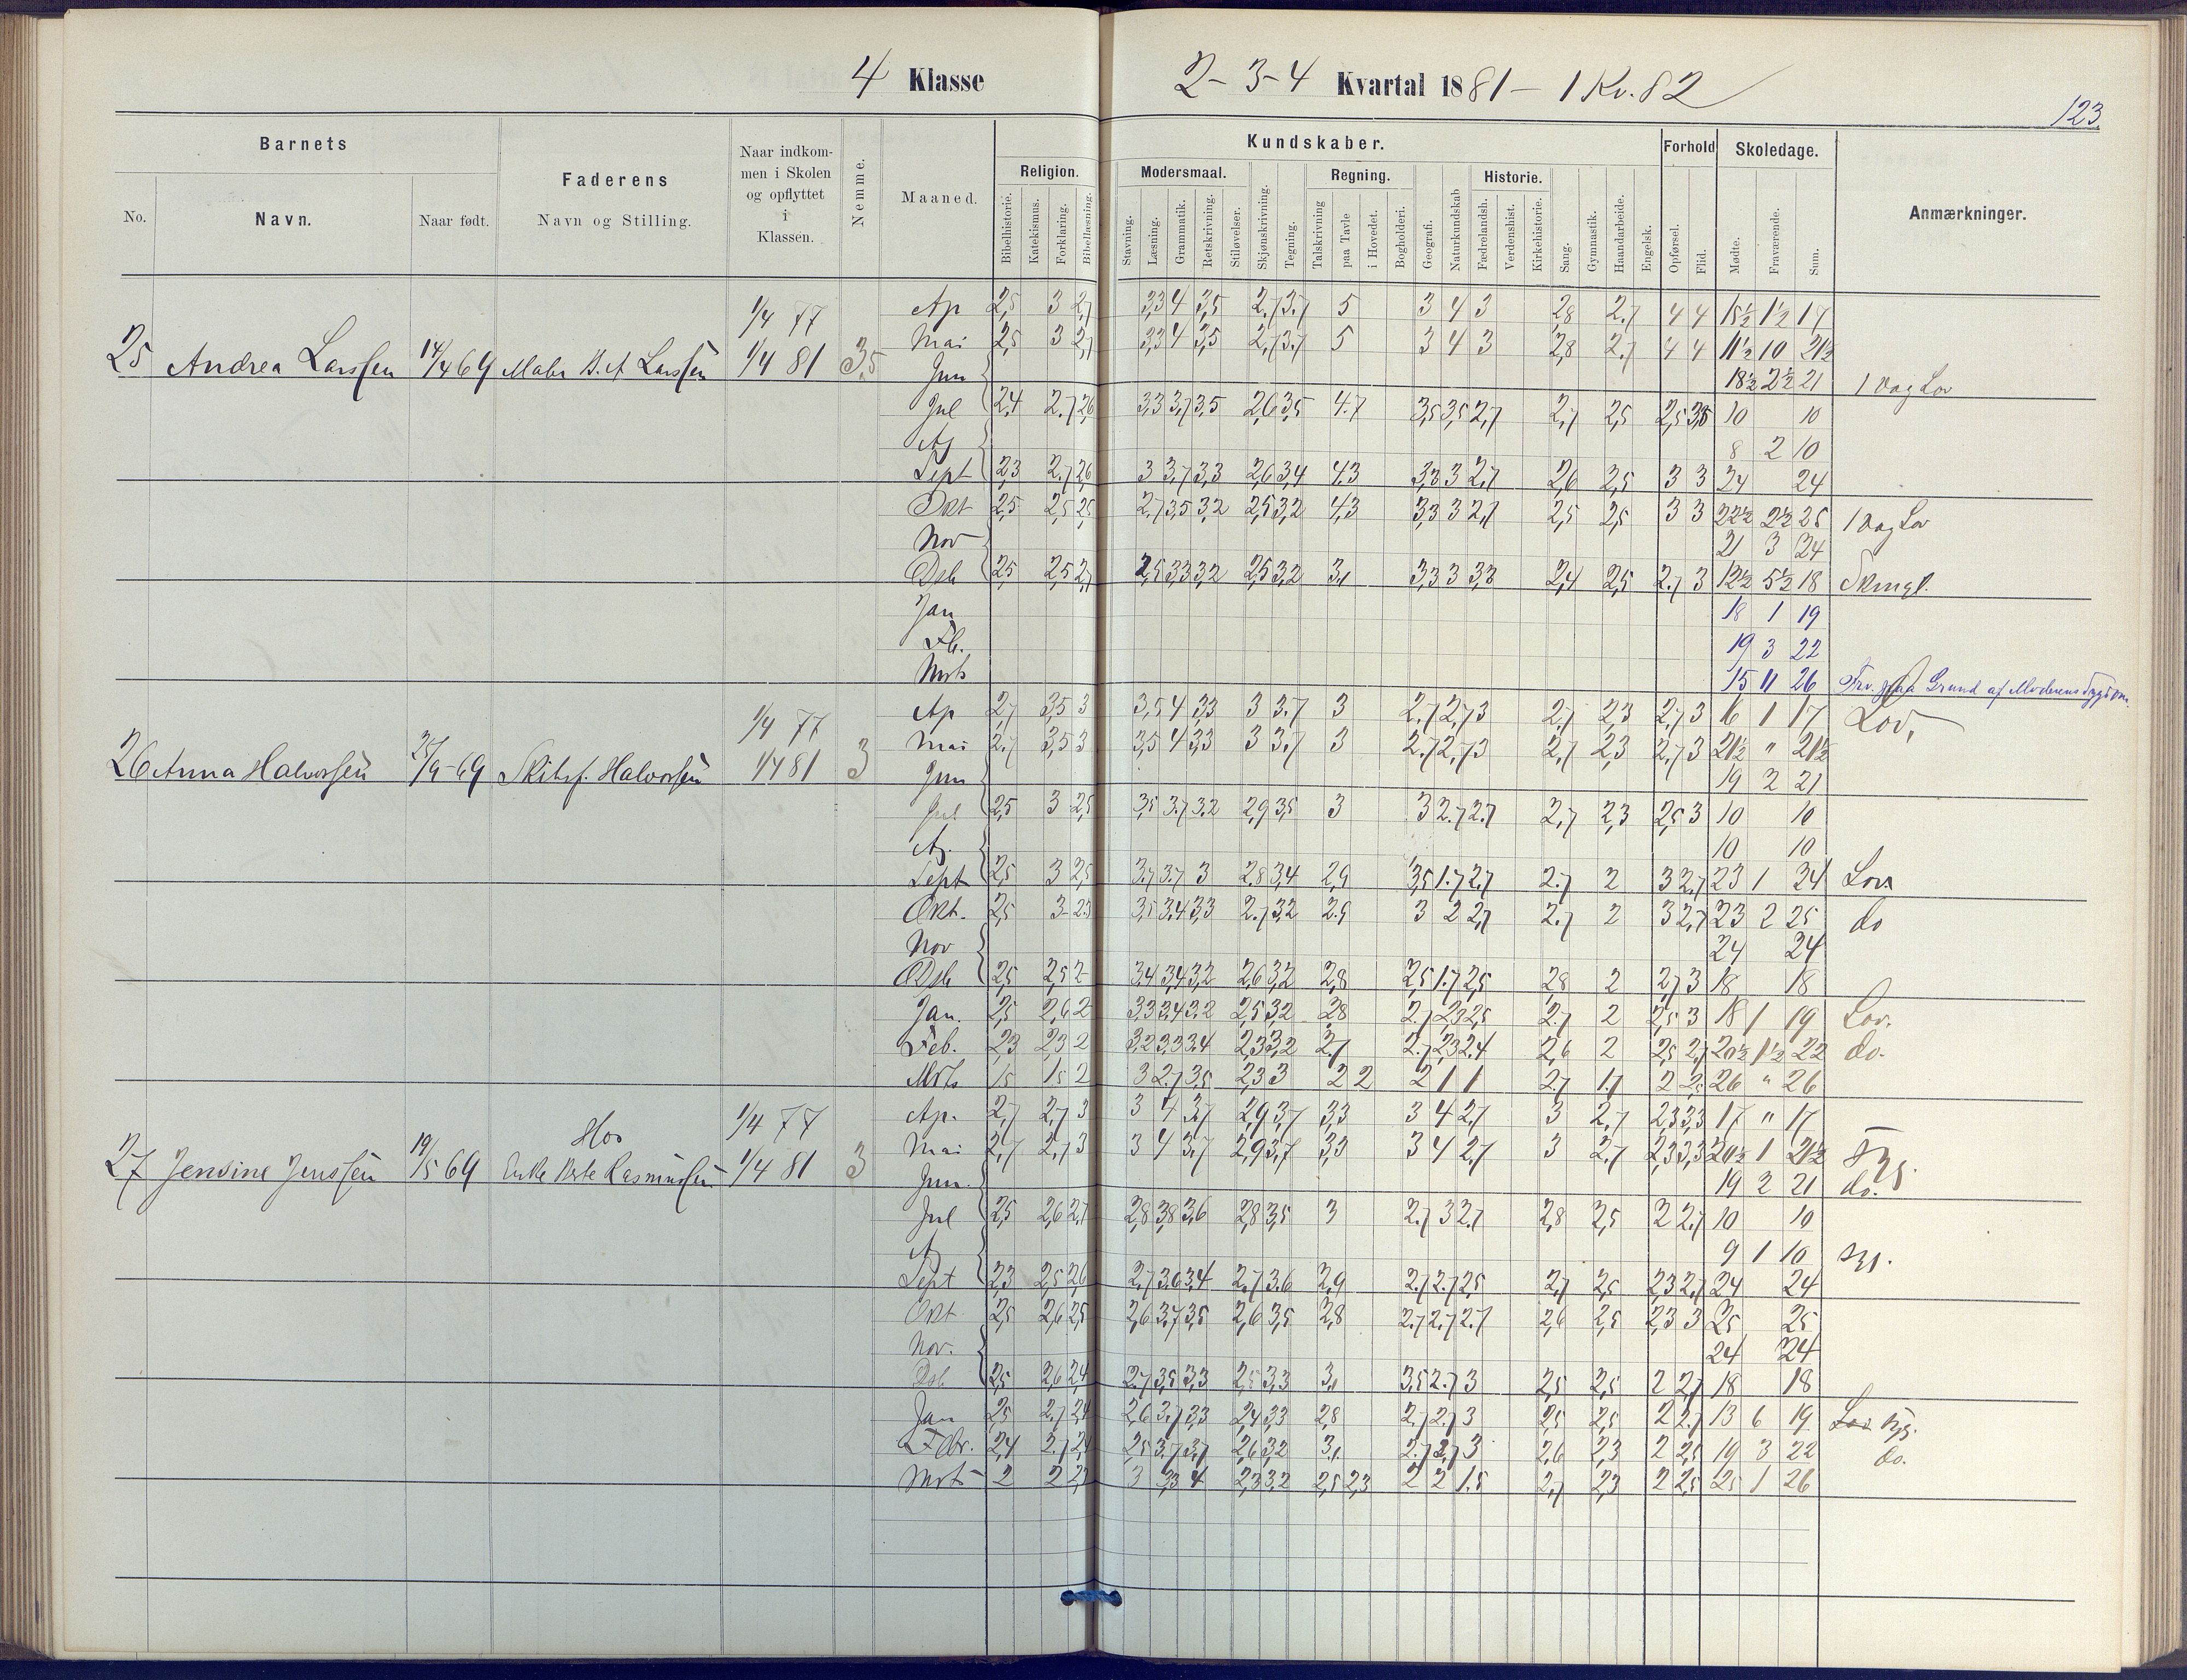 4 Klasse
2-3-4 Kvartal 1881 - 1 Kv. 82
123
Barnets
No. Navn. Naar født.
Faderens
Navn og Stilling.
Naar indkom-
men i Skolen
og opflyttet
i
Klassen.
Nemme.
Maaned.
Kundskaber.
Religion.
Bibelhistorie. Katekismus. Forklaring. Bibellæsning.
Modersmaal.
Stavning. Læsning. Grammatik. Retskrivning. Stiløvelser. Skjønskrivning. Tegning.
Regning.
Talskrivning paa Tavle i Hovedet. Bogholderi. Geografi. Naturkundskab
Historie.
Fædrelandsh. Verdenshist. Kirkehistorie. Sang. Gymnastik. Haandarbeide. Engelsk.
Forhold
Opførsel. Flid.
Skoledage.
Mødte. Fraværende. Sum.
Anmærkninger.
1/4 77
25 Andrea Larssen 14/4 69 Larssen 1/4 81 3,5
Ap 2,5 3 2,7 3,3 4 3,5 2,7 3,7 5 3 4 3 2,8 2,7 4 4 15½ 1½ 17
Mai 2,5 3 2,7 3,3 4 3,5 2,7 3,7 5 3 4 3 2,8 2,7 4 4 11½ 10 21½
Jun 18½ 2½ 21 1 Dag Lov
Jul 2,4 2,7 2,6 3,3 3,7 3,5 2,6 3,5 4,7 3,5 3,5 2,7 2,7 2,5 2,5 3,5 10 10
Ag 8 2 10
Sept 2,3 2,7 2,6 3 3,7 3,3 2,6 3,4 4,3 3,3 3 2,7 2,6 2,5 3 3 24 24
Okt 2,5 2,5 2,5 2,7 3,5 3,2 2,5 3,2 4,3 3,3 3 2,7 2,5 2,5 3 3 22½ 2½ 25 1 Dag Lov
Nov 21 3 24
Dsb 2,5 2,5 2,7 2,5 3,3 3,2 2,5 3,2 3,1 3,3 3 3,3 2,4 2,5 2,7 3 12½ 5½ 18
Jan 18 1 19
Fb. 19 3 22
Mrts 15 11 26 Frv. paa Grund af Moderens Sygdom.
1/4 77
26 Anna Halvorsen 69 Skibsf. Halvorsen 1/4 81 3
Ap 2,7 3,5 3 3,5 4 3,3 3 3,7 3 2,7 2,7 3 2,7 2,3 2,7 3 16 1 17 Lov,
Mai 2,7 3,5 3 3,5 4 3,3 3 3,7 3 2,7 2,7 3 2,7 2,3 2,7 3 21½ " 21½
Jun 19 2 21
Jul 2,5 3 2,5 3,5 3,7 3,2 2,9 3,5 3 3 2,7 2,7 2,7 2,3 2,5 3 10 10
Ag. 10 10
Sept 2,5 3 2,5 3,7 3,7 3 2,8 3,4 2,9 3,5 1,7 2,7 2,7 2 3 2,7 23 1 24 Lov
Okt. 2,5 3 2,3 3,5 3,4 3,3 2,7 3,2 2,9 3 2 2,7 2,7 2 3 2,7 23 2 25 do
Nov 24 24
Dsb 2,5 2,5 2 3,4 3,4 3,2 2,6 3,2 2,8 2,5 1,7 2,5 2,8 2 2,7 3 18 18
Jan. 2,5 2,6 2 3,3 3,4 3,2 2,5 3,2 2,8 2,7 2,3 2,5 2,7 2 2,5 3 18 1 19 Lov.
Feb. 2,3 2,3 2 3,2 3,3 3,4 2,3 3,2 2,7 2,7 2,3 2,4 2,6 2 2,5 2,7 20½ 1½ 22 do.
Mrts 1,5 1,5 2 3 2,7 3,5 2,3 3 2 2 2 1 1 2,7 1,7 2 2,5 26 " 26
Hos 1/4 77
27 Jensine Jenssen 19/5 69 Enke Rasmussen 1/4 81 3
Ap. 2,7 2,7 3 3 4 3,7 2,9 3,7 3,3 3 4 2,7 3 2,7 2,3 3,3 17 " 17
Mai 2,7 2,7 3 3 4 3,7 2,9 3,7 3,3 3 4 2,7 3 2,7 2,3 3,3 20½ 1 21½ Syg.
Jun. 19 2 21 do.
Jul 2,5 2,6 2,7 2,8 3,8 3,6 2,8 3,5 3 2,7 3 2,7 2,8 2,5 2 2,7 10 10
Ag 9 1 10 Syg.
Sept 2,3 2,5 2,6 2,7 3,6 3,4 2,7 3,6 2,9 2,7 2,7 2,5 2,7 2,5 2,3 2,7 24 24
Okt 2,5 2,6 2,5 2,6 3,7 3,5 2,6 3,5 2,8 2,7 2,7 2,7 2,6 2,5 2,3 3 25 25
Nov. 24 24
Dsb 2,5 2,6 2,4 2,7 3,5 3,3 2,5 3,3 3,1 3,5 2,7 3 2,5 2,5 2 2,7 18 18
Jan 2,5 2,7 2,4 2,6 3,7 3,3 2,4 3,3 2,8 2,7 2,7 3 2,5 2,5 2 2,7 13 6 19 Lov Syg.
Febr. 2,4 2,7 2,4 2,5 3,7 3,7 2,6 3,2 3,1 2,7 2,7 3 2,6 2,3 2 2,5 19 3 22 do.
Mrts 2 2 2,2 3 3,3 4 2,3 3,2 2,5 2,3 2 2 1,5 2,7 2,3 2 2,5 25 1 26